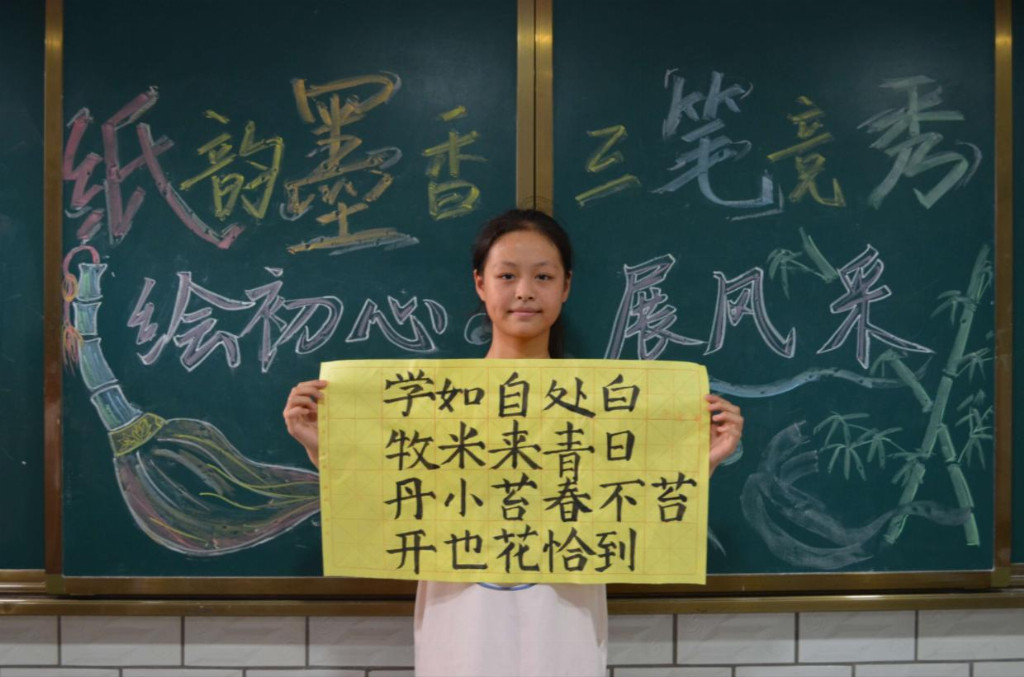 纸韵墨香 三笔竞秀
绘初心。展风采
学如自处白
牧米来青日
丹小苔春不苔
开也花恰到